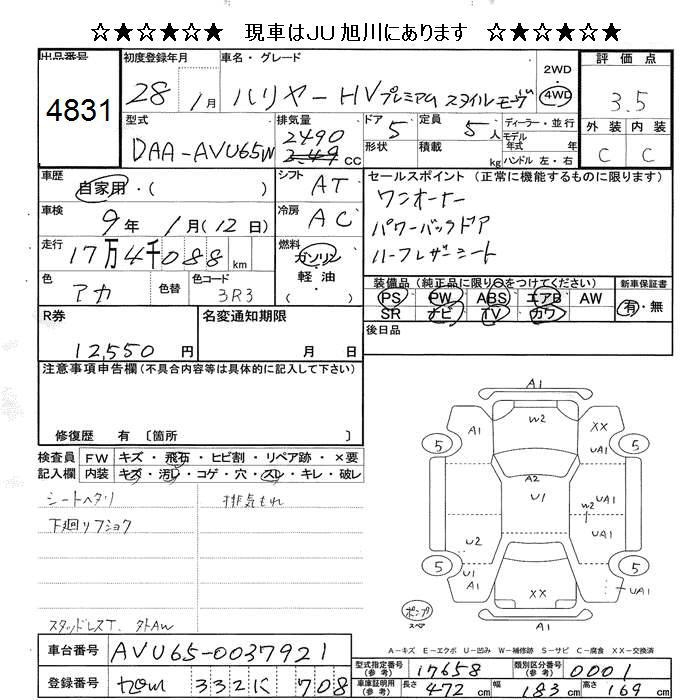 ☆★☆★☆★ 現車はJU旭川にあります ☆★☆★☆★
出品番号
4831
初度登録年月
28 1月
車名・グレード
ハリヤーHVプレミアム スタイルモーヴ
2WD
4WD
評価点
3.5
外装 内装
C C
型式
DAA-AVU65W
排気量
2490
2.49 CC
ドア
5
形状
定員
5人
積載 kg
ディーラー・並行
モデル
年式 年
ハンドル 左・右
車歴
自家用・( )
シフト
AT
セールスポイント (正常に機能するものに限ります)
ワンオーナー
パワーバックドア
ハーフレザーシート
車検
9年 1月(12日)
冷房
AC
走行
17万4千088km
燃料
ガソリン
軽・油
( )
色
アカ
色替
色コード
3R3
装備品 (純正品に限り○をつけてください)
PS PW ABS エアB AW
SR ナビ TV カワ
新車保証書
有・無
後日品
R券
12,550円
名変通知期限
月 日
注意事項申告欄 (不具合内容等は具体的に記入して下さい)
修復歴 有 〔箇所 〕
検査員
記入欄
FW キズ・飛石・ヒビ割・リペア跡・×要
内装 キズ・汚レ・コゲ・穴・スレ・キレ・破レ
シートヘタリ
下廻リフショク
排気もれ
スタッドレスT. タトAW
A1
A1 W2 XX
5 5
UA1
A2
U1
UA1
W2
UA1
U2
5 5
U1
A1 XX UA1
A1
ポンプ
スペア
A-キズ E-エクボ U-凹み W-補修跡 S-サビ C-腐食 XX-交換済
車台番号
AVU65-0037921
登録番号
332 708
型式指定番号
(参考)
17658
類別区分番号
(参考)
0001
車庫証明用
(参考)
長さ 472cm 幅 183cm 高さ 169cm